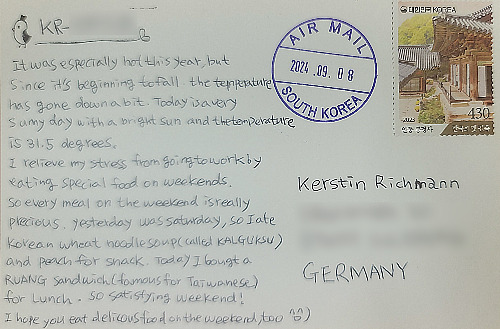 KR-
It was especially hot this year, but
since it's beginning to fall. the temperature
has gone down a bit. Today is a very
sunny day with a bright sun and the temperature
is 31.5 degrees.
I relieve my stress from going to work by
eating special food on weekends.
So every meal on the weekend is really
precious. yesterday was saturday, so I ate
Korean wheat noodle soup (called KALGUKSU)
and peach for snack. Today I bougt a
RUANG sandwich (famous for Taiwanese)
for Lunch. so satisfying weekend!
I hope you eat delicous food on the weekend, too ^^)
AIR MAIL
2024.09.08
SOUTH KOREA
대한민국 KOREA
430
Kerstin Richmann
GERMANY